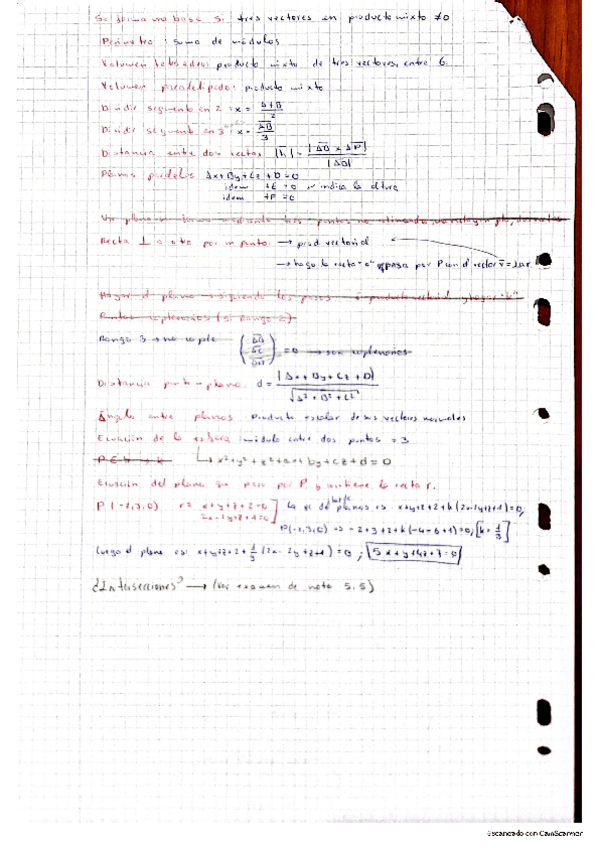 Se forma una base si tres vectores en producto mixto ≠0
Perímetro: suma de módulos
Volumen tetraedro: producto mixto de tres vectores, entre 6.
Volumen paralelepípedo: producto mixto
Dividir segmento en 2: x = A+B / 2
Dividir segmento en 3: x = AB / 3
Distancia entre dos rectas |h| = |AB x AP| / |AB|
Planos paralelos Ax+By+Cz+D=0
idem +E=0 indica la altura
idem +F=0
Recta ⊥ a otra por un punto: → prod vectorial
→ hago la recta "s" q pasa por P con d vector
Hayar el plano siguiendo los pasos
Puntos coplanarios (si Rango 2)
Rango 3 → no cople (AB AC AD) = 0 → son coplanarios
Distancia punto-plano: d = |Ax+By+Cz+D| / √A²+B²+C²
Ángulo entre planos: Producto escalar de sus vectores normales
Ecuación de la esfera: módulo entre dos puntos = 3
↳ x²+y²+z²+ax+by+cz+d=0
Ecuación del plano que pasa por P y contiene la recta r.
P(-2,3,0) r= x+y+z+2=0 la ec del haz de planos es: x+y+z+2+k(2x-2y+z+1)=0;
2x-2y+z+1=0
P(-2,3,0) ⇒ -2+3+2+k(-4-6+1)=0; k=1/3
Luego el plano es: x+y+z+2+1/3(2x-2y+z+1)=0; 5x+y+4z+7=0
¿Intersecciones? → (Ver examen de nota 5.5)
Escaneado con CamScanner